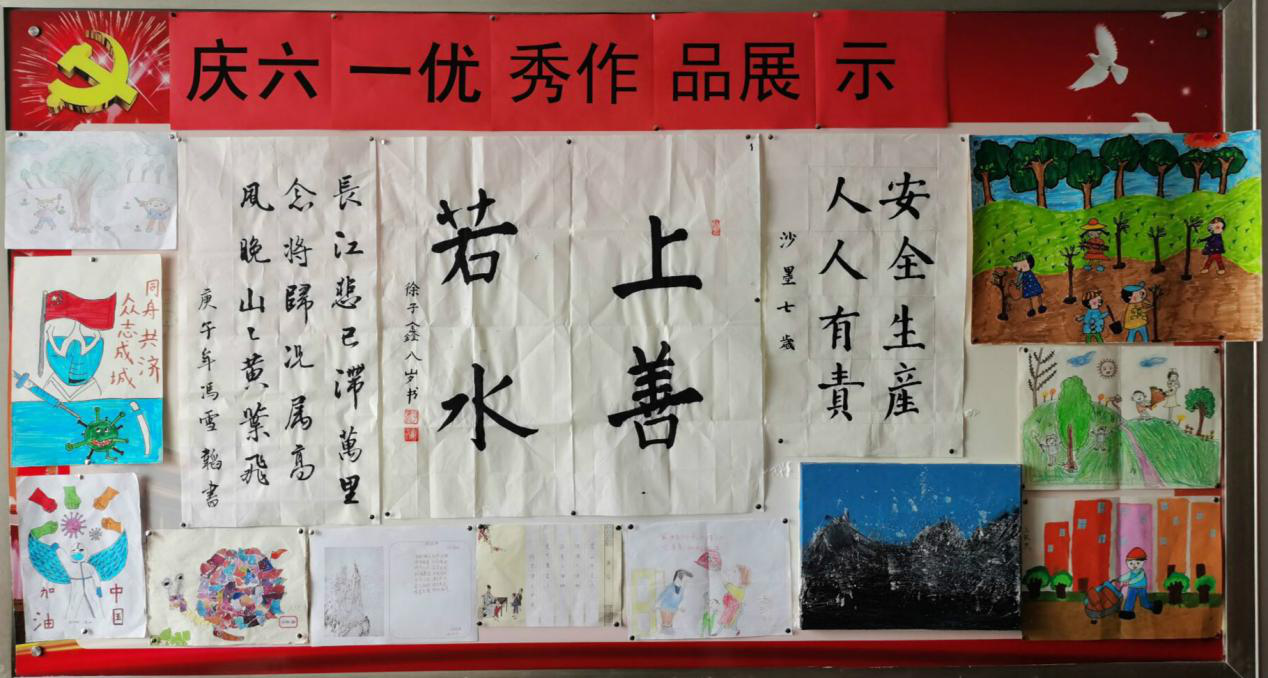 庆六一优秀作品展示
長江悲已滯萬里
念將歸况属高
風晚山〻黄葉飛
庚午年冯雪韜書
上善
若水
徐子鑫八岁书
安全生産
人人有責
沙墨七歲
同舟共济
众志成城
中国
加油